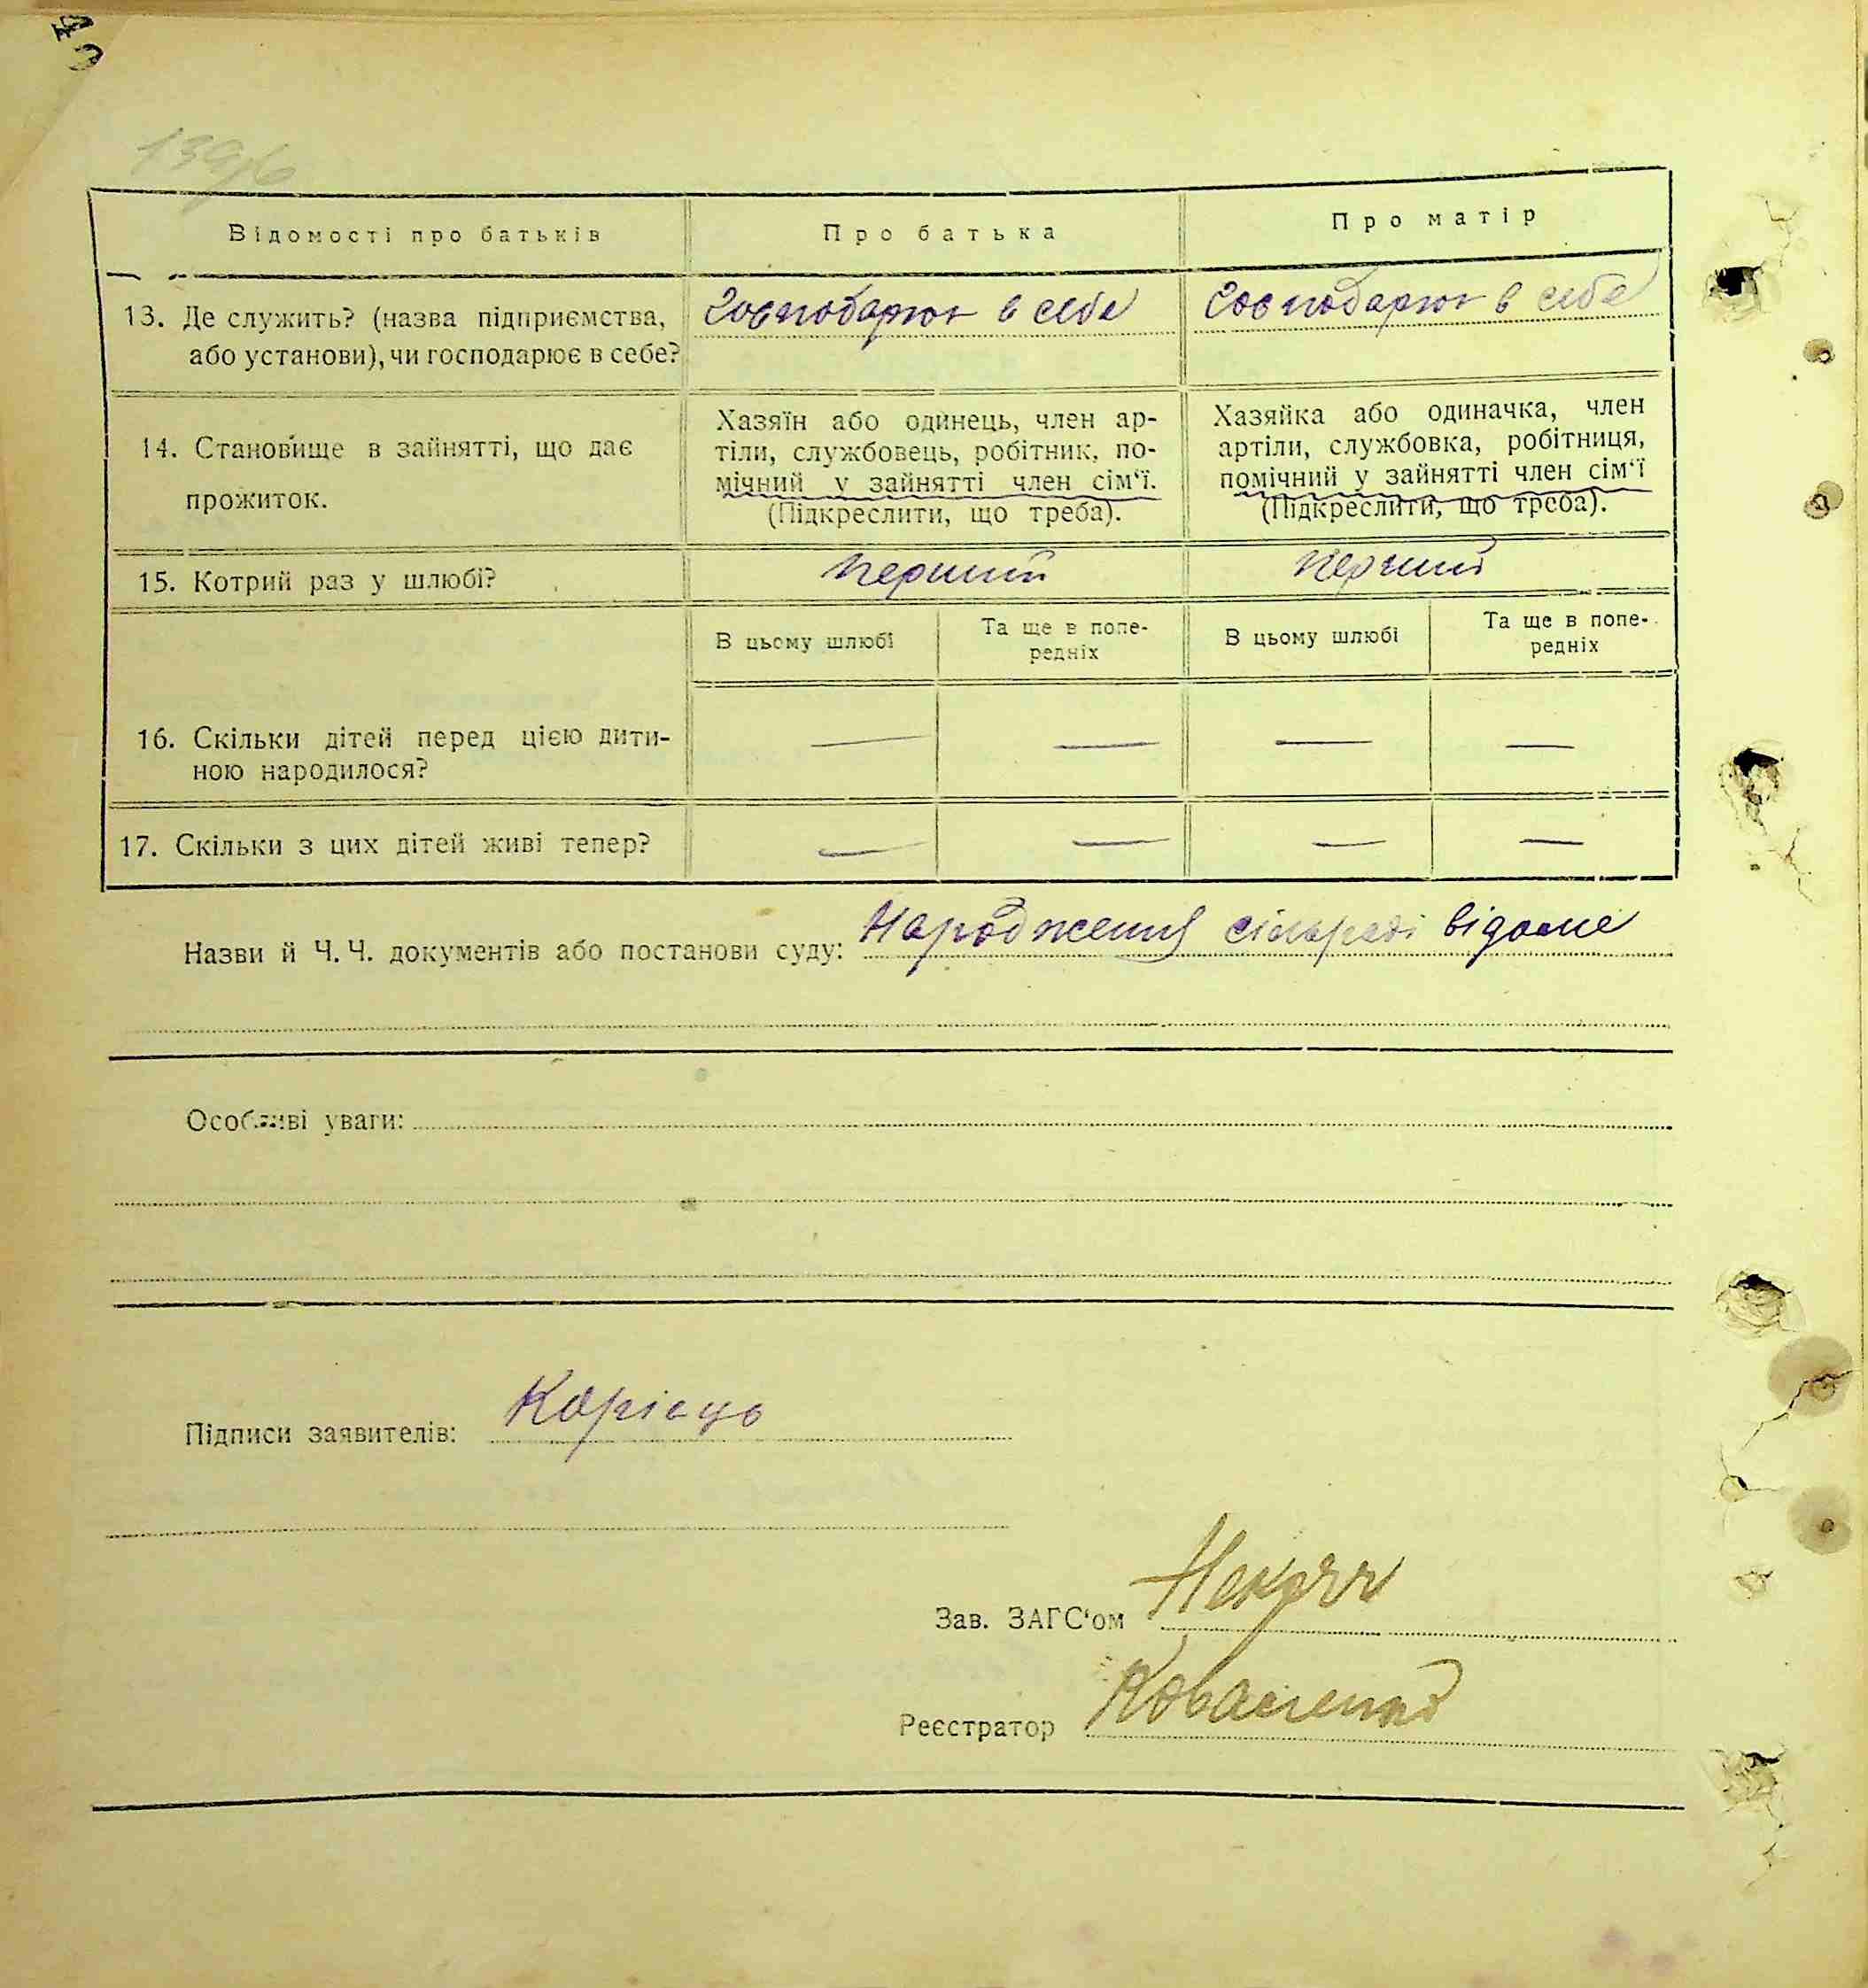 Відомості про батьків
Про батька
Про матір
13. Де служить? (назва підприємства,
або установи), чи господарює в себе?
Господарює в себе
Господарює в себе
14. Становище в зайнятті, що дає
прожиток.
Хазяїн або одинець, член ар-
тіли, службовець, робітник, по-
мічний у зайнятті член сім'ї.
(Підкреслити, що треба).
Хазяйка або одиначка, член
артіли, службовка, робітниця,
помічний у зайнятті член сім'ї
(Підкреслити, що треба).
15. Котрий раз у шлюбі?
перший
перший
В цьому шлюбі
Та ще в попе-
редніх
В цьому шлюбі
Та ще в попе-
редніх
16. Скільки дітей перед цією дити-
ною народилося?
— — — —
17. Скільки з цих дітей живі тепер?
— — — —
Назви й Ч. Ч. документів або постанови суду: Народження сільраді відоме
Особливі уваги:
Підписи заявителів:
Зав. ЗАГС'ом
Реєстратор